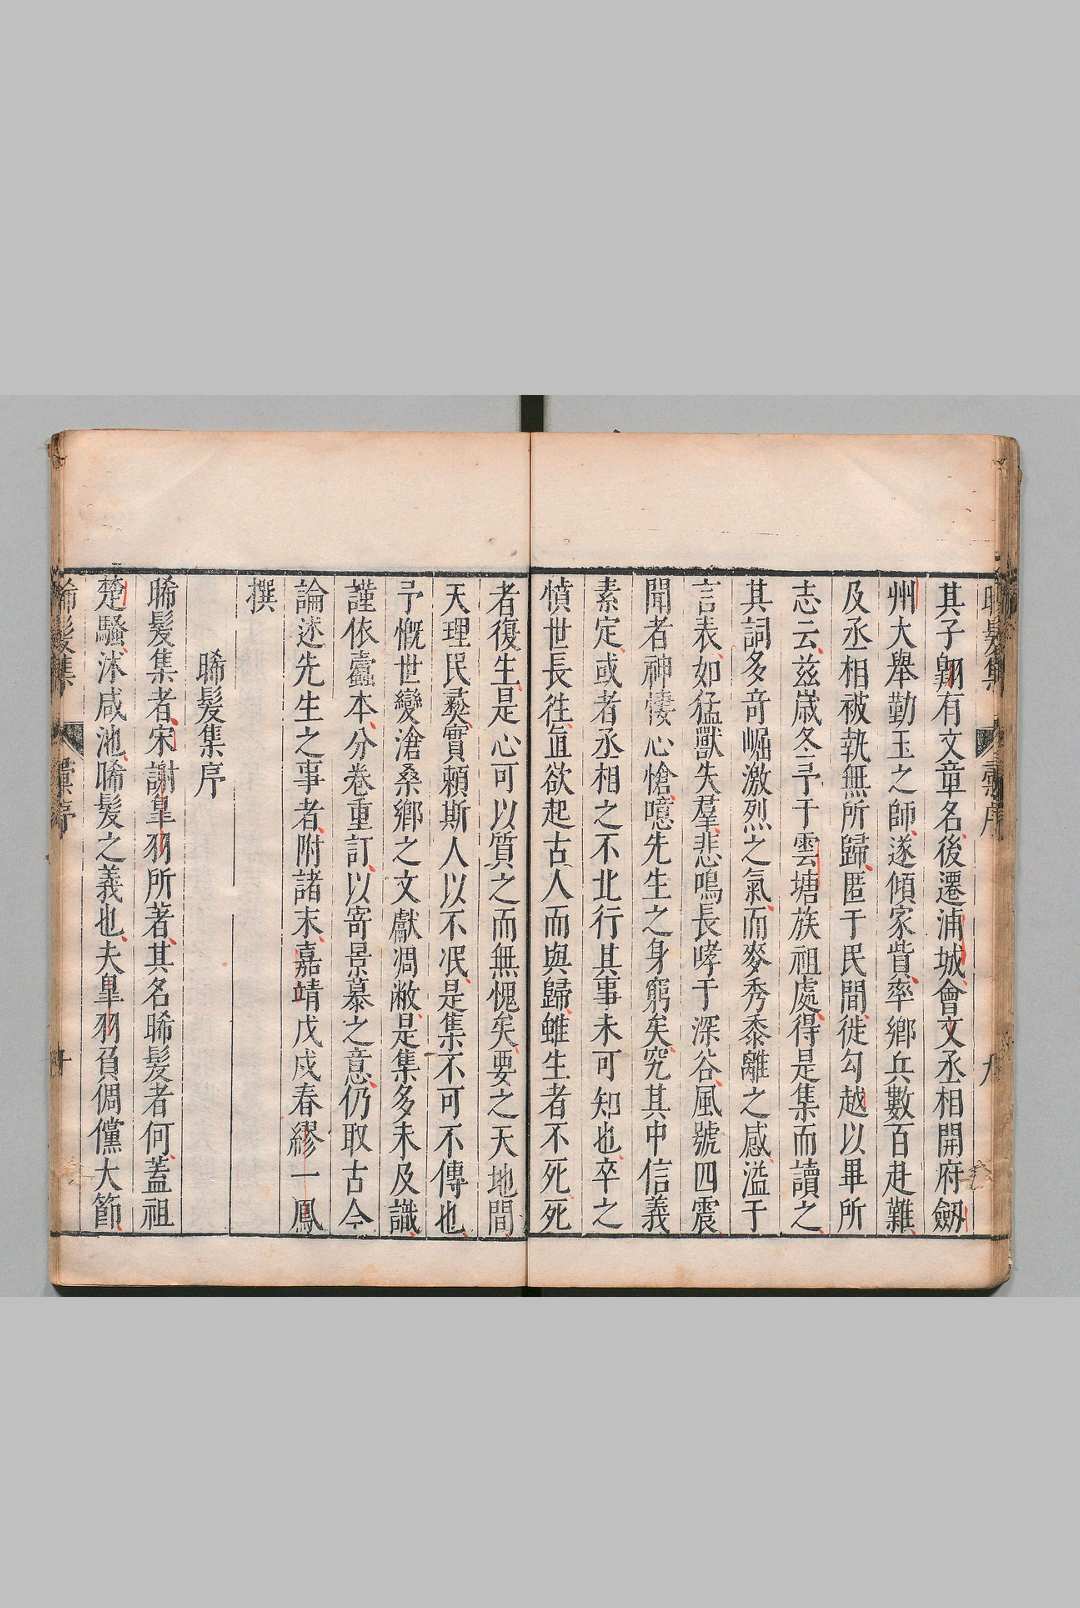 其子翺有文章名後遷浦城會文丞相開府劔
州大舉勤王之師遂傾家貲率鄉兵數百赴難
及丞相被執無所歸匿于民間徙勾越以畢所
志云兹嵗冬予于雲塘族祖處得是集而讀之
其詞多竒崛激烈之氣而麥秀黍離之感溢于
言表如猛獸失羣悲鳴長哮于深谷風號四震
聞者神悽心愴噫先生之身窮矣究其中信義
素定或者丞相之不北行其事未可知也卒之
憤世長徃直欲起古人而與歸雖生者不死死
者復生是心可以質之而無愧矣要之天地間
天理民彛實賴斯人以不泯是集不可不傳也
予慨世變滄桑鄉之文獻凋敝是集多未及識
謹依蠹本分卷重訂以寄景慕之意仍取古今
論述先生之事者附諸末嘉靖戊戌春繆一鳳
撰
晞髮集序
晞髮集者宋謝臯羽所著其名晞髮者何蓋祖
楚騷沐咸池晞髮之義也夫臯羽負倜儻大節